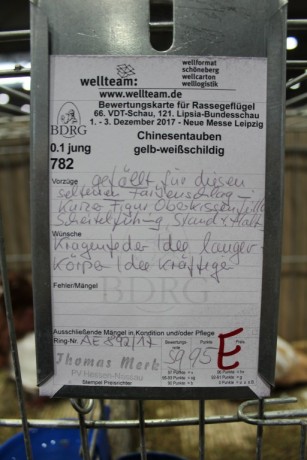 wellteam:
wellformat
schöneberg
wellcarton
welllogistik
www.wellteam.de
Bewertungskarte für Rassegeflügel
66. VDT-Schau, 121. Lipsia-Bundesschau
1. - 3. Dezember 2017 - Neue Messe Leipzig
BDRG
Chinesentauben
0.1 jung
gelb-weißschildig
782
Vorzüge gefällt für diesen
seltenen Farbenschlag -
Kurze Figur
Stand + Halt.
Wünsche
Kragenfeder Idee länger -
Körper Idee kräftiger
Fehler/Mängel
BDRG
Ausschließende Mängel in Kondition und/oder Pflege
Ring-Nr. AE 892/17
Bewertungs-
note
Punkte
Preis
95
E
Thomas Merk
PV Hessen-Nassau
Stempel Preisrichter